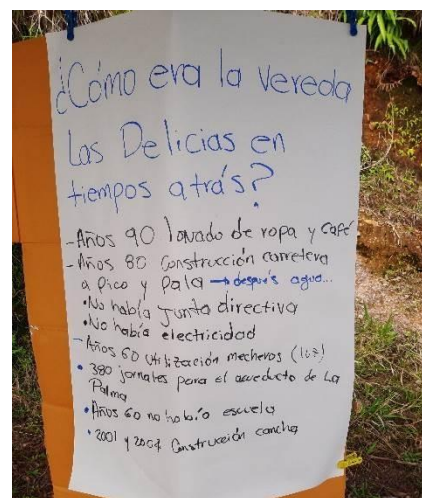 ¿Cómo era la vereda
Las Delicias en
tiempos atrás?
- Años 90 lavado de ropa y café
- Años 80 Construcción carretera
a Pico y Pala → después agua...
• No había Junta directiva
• No había electricidad
- Años 60 utilización mecheros (luz)
• 380 jornales para el acueducto de La
Palma
• Años 60 no había escuela
• 2001 y 2007 Construcción cancha